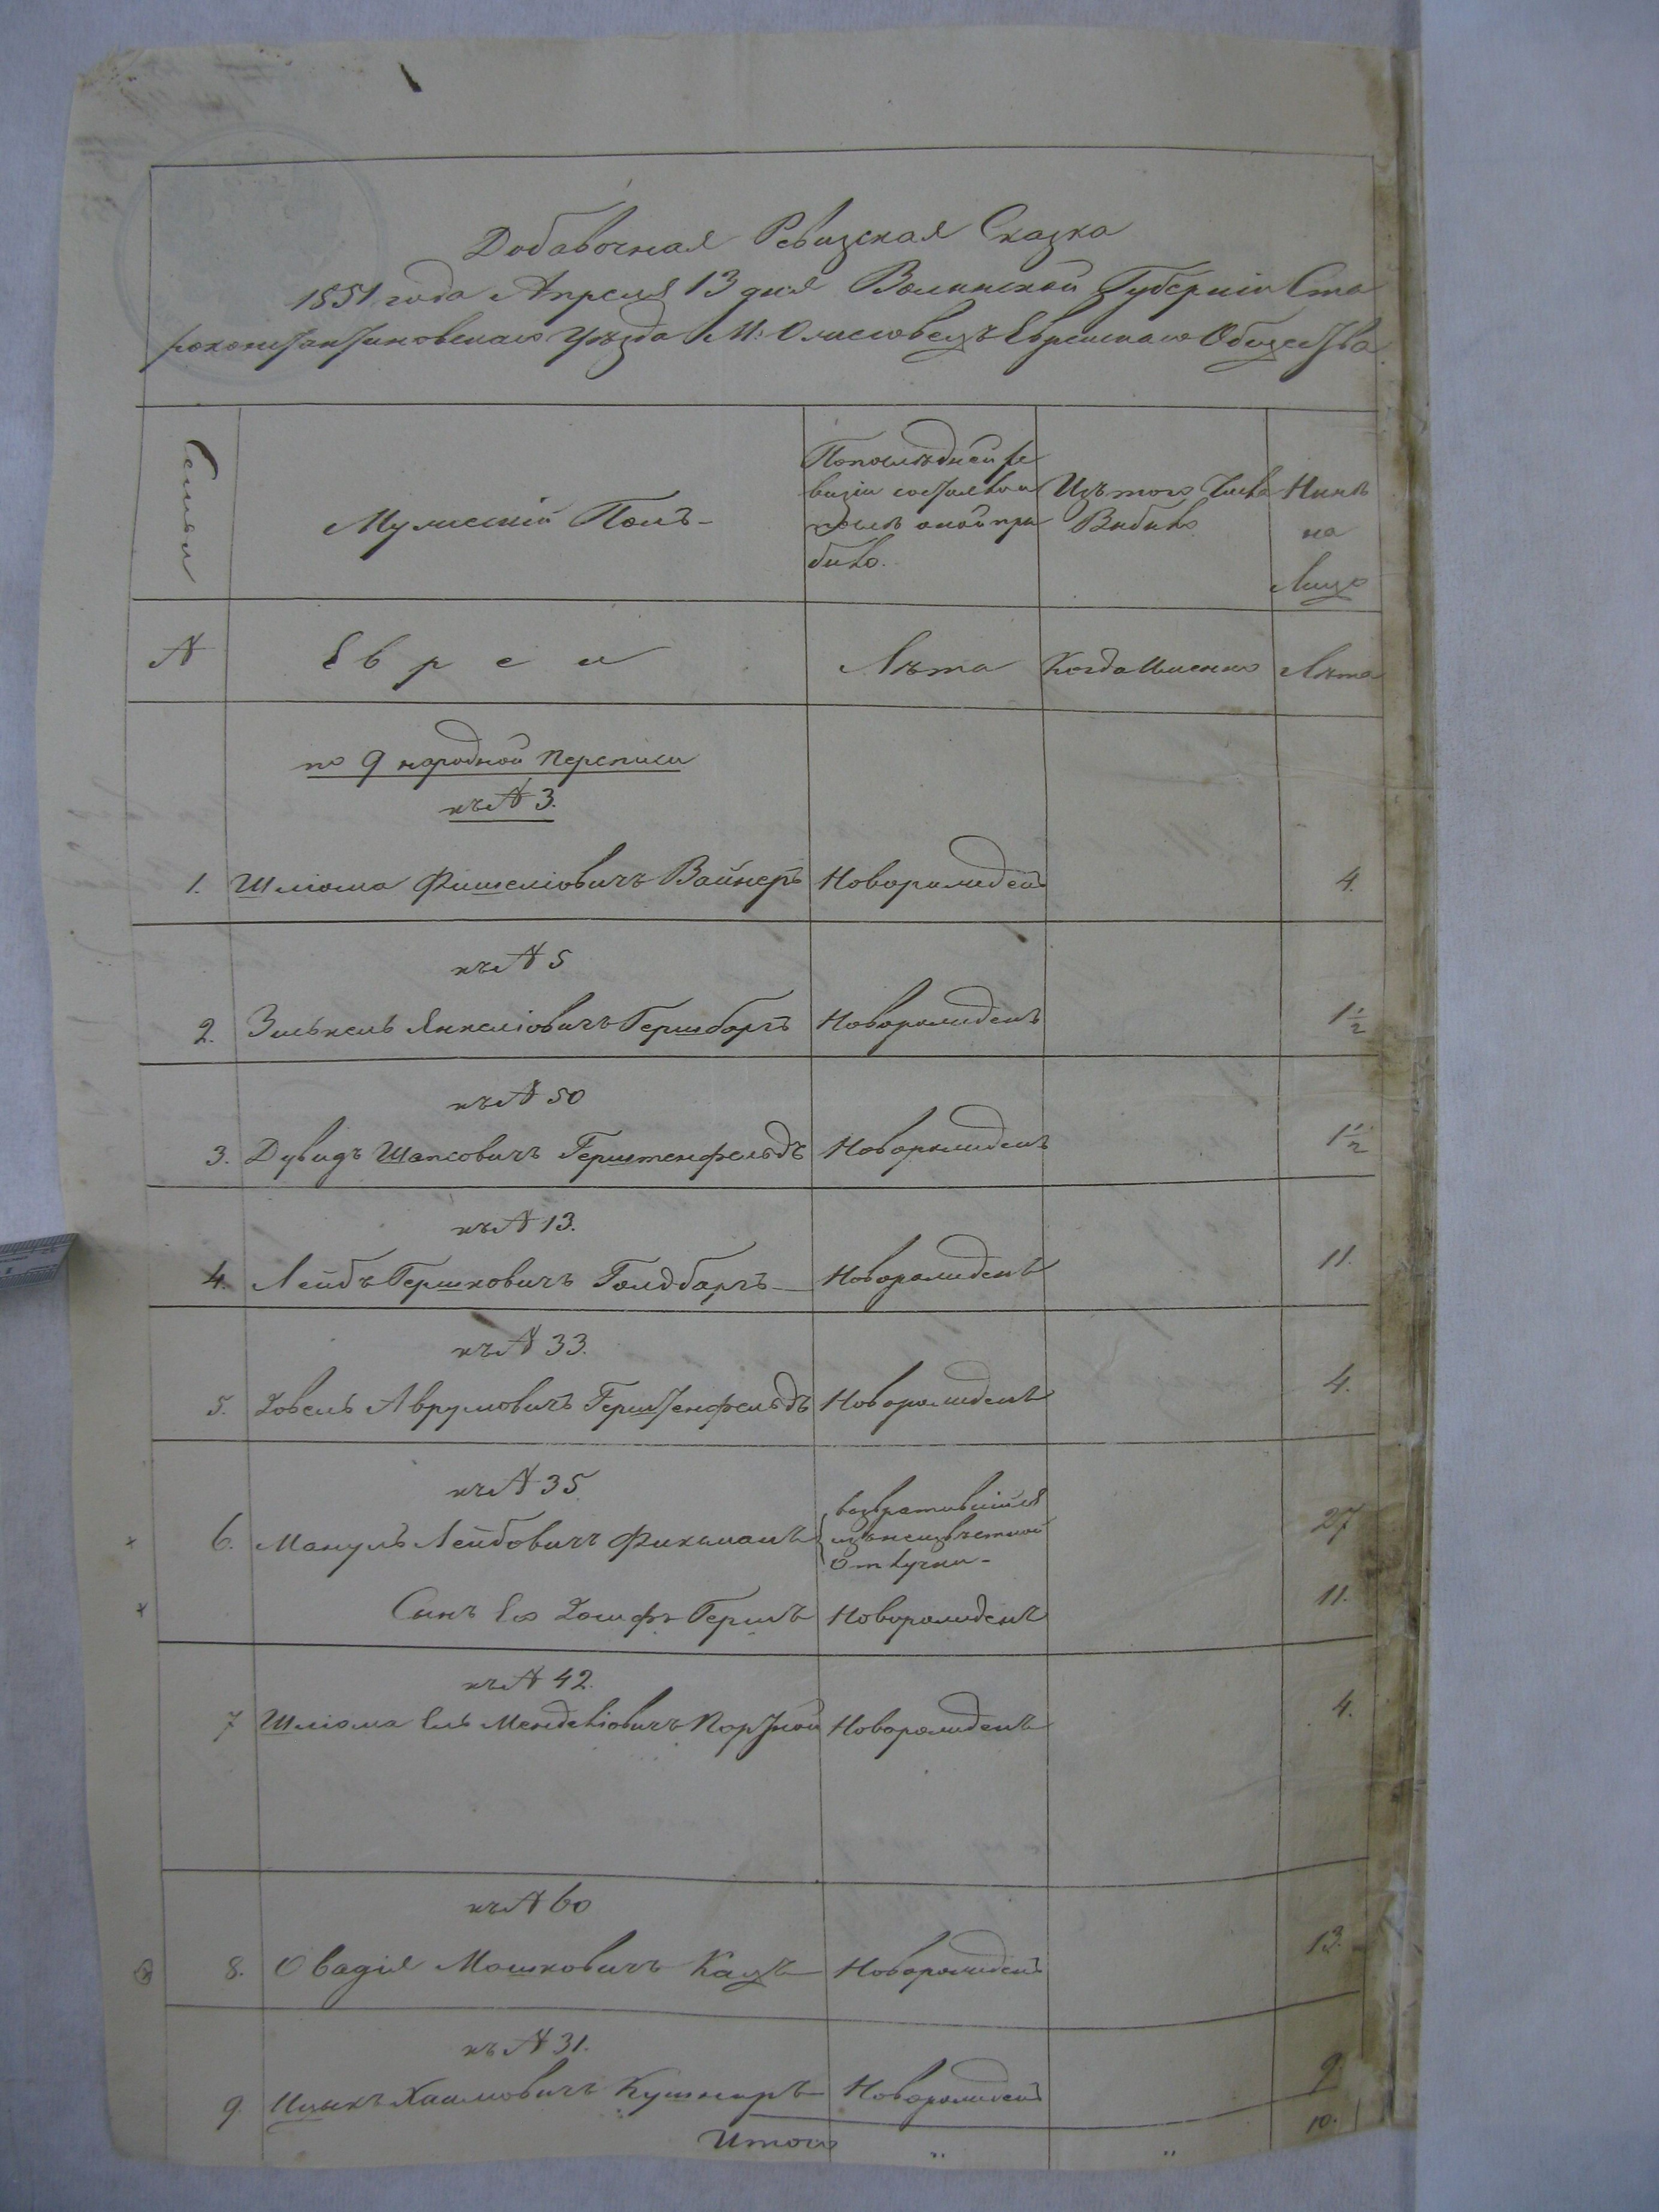 Добавочная Ревизская Сказка
1851 года Апреля 13 дня Волынской Губерніи Ста
роконстантиновскаго Уѣзда М: Ошеевецъ Еврейскаго Общества
Семьи
Мужескій Полъ
По последней ре
визіи состояло и
после оной при
было.
Изъ того числа
Выбыло
Нынѣ
на
Лицо
№
Евреи
Лѣта
Когда Именно
Лѣта
по 9 народной переписи
къ № 3.
1. Шліома Фишеліовичъ Вайнеръ Новорожденъ 4.
къ № 5
2. Янкеліовичъ Гершбаргъ Новорожденъ 1 1/2
къ № 50
3. Дувидъ Шапсовичъ Герштенфельдъ Новорожденъ 1 1/2
къ № 13.
4. Лейбъ Гершковичъ Голдбаргъ Новорожденъ 11.
къ № 33.
5. Іовель Аврумовичъ Герштенфельдъ Новорожденъ 4.
къ № 35
6. Манулъ Лейбовичъ Фихманъ возвратившійся 27
изъ неизвѣстной
отлучки
Сынъ Его Іосифъ Гершъ Новорожденъ 11.
къ № 42.
7 Шліома Ель Менделіовичъ Портной Новорожденъ 4.
къ № 60
8. Овадія Мошковичъ Кацъ Новорожденъ 13.
къ № 31.
9. Ицыкъ Хаимовичъ Кушниръ Новорожденъ 9.
Итого " " 10.